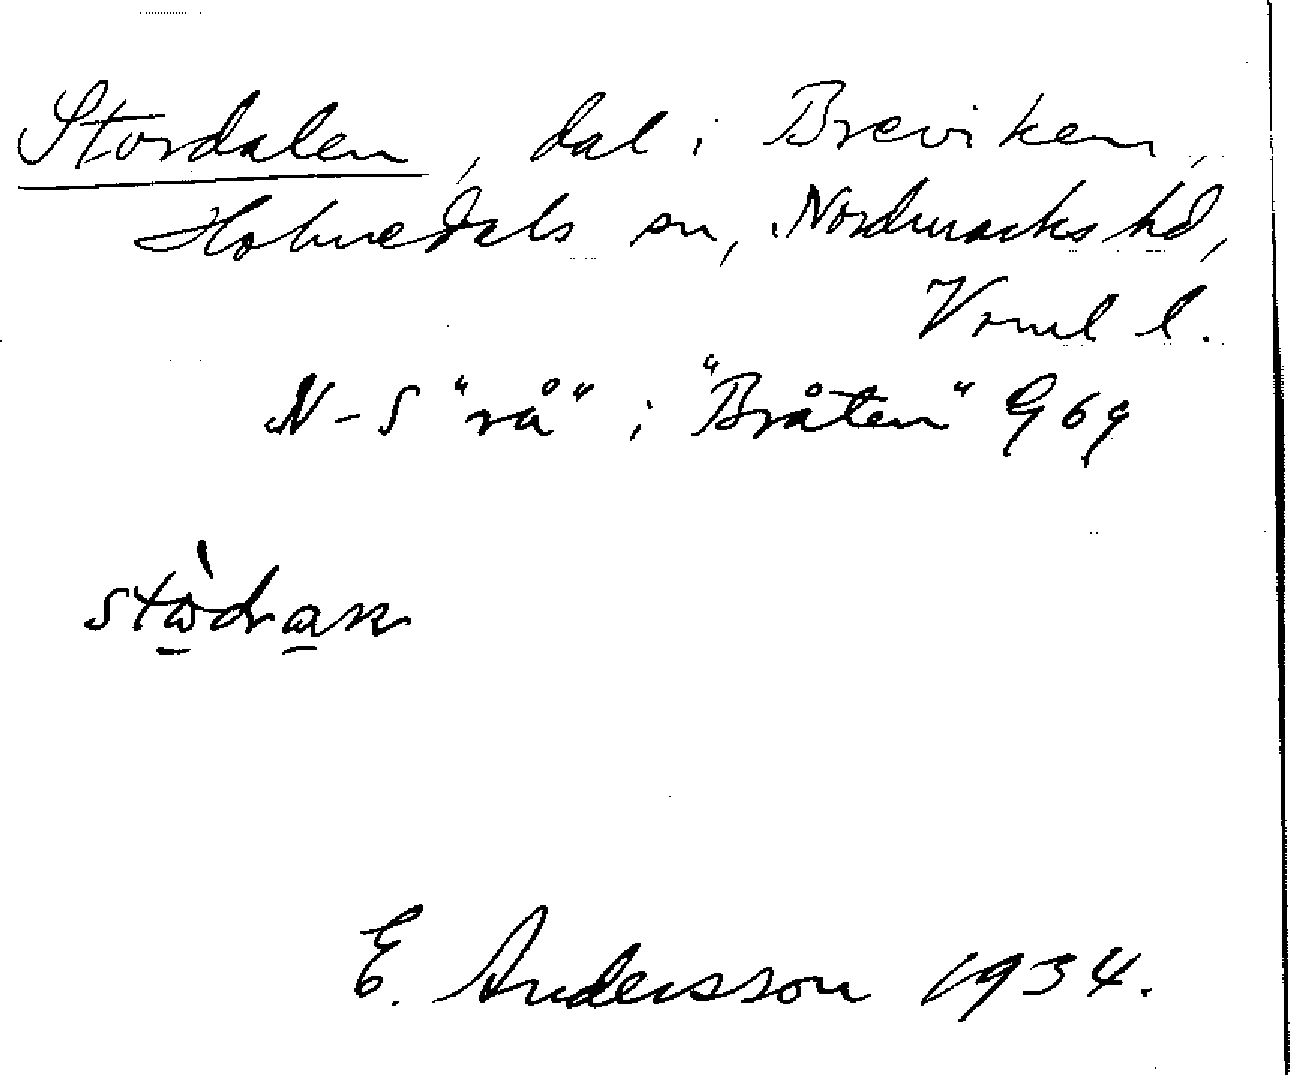 Stordalen, dal i Breviken,
Holmedals sn, Nordmarks hd,
Vrml l.
N-S "rå" i "Bråten" G 69
E. Andersson 1934.